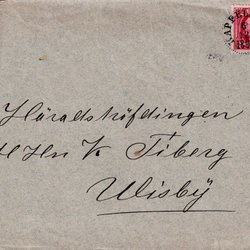 KAPPEL
Häradshöfdingen
H Hr V Tiberg
Wisby